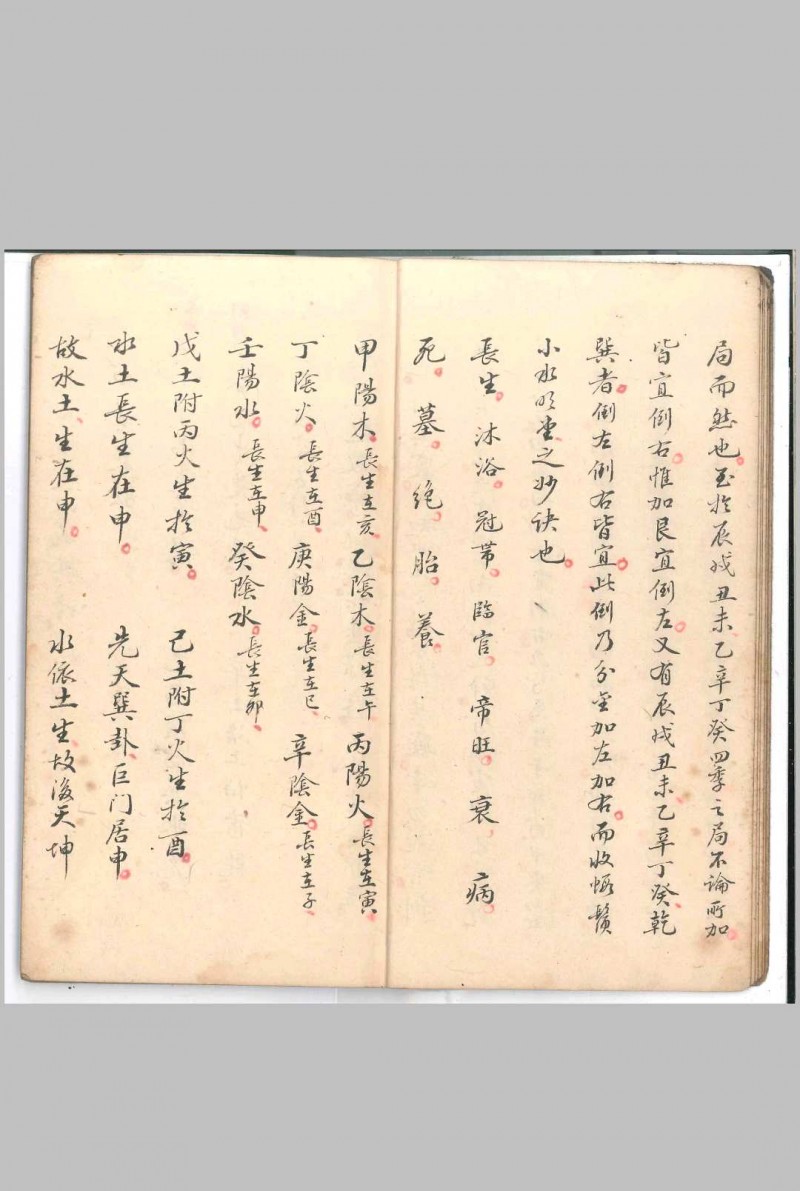 局而然也。至於辰戌丑未、乙辛丁癸四季之局不論所加。
皆宜倒右。惟加艮宜倒左。又有辰戌丑未、乙辛丁癸、乾
巽者。倒左倒右皆宜。此倒乃分金加左加右。而收蝦鬚
小水明堂、之妙訣也。
長生。沐浴。冠帶。臨官。帝旺。衰。病。
死。墓。絶。胎。養。
甲陽木。長生在亥。乙陰木。長生在午。丙陽火。長生在寅。
丁陰火。長生在酉。庚陽金。長生在巳。辛陰金。長生在子。
壬陽水。長生在申。癸陰水。長生在卯。
戊土附丙火生於寅。己土附丁火生於酉。
水土長生在申。先天巽卦、巨门居申。
故水土、生在申。水依土生、故後天坤